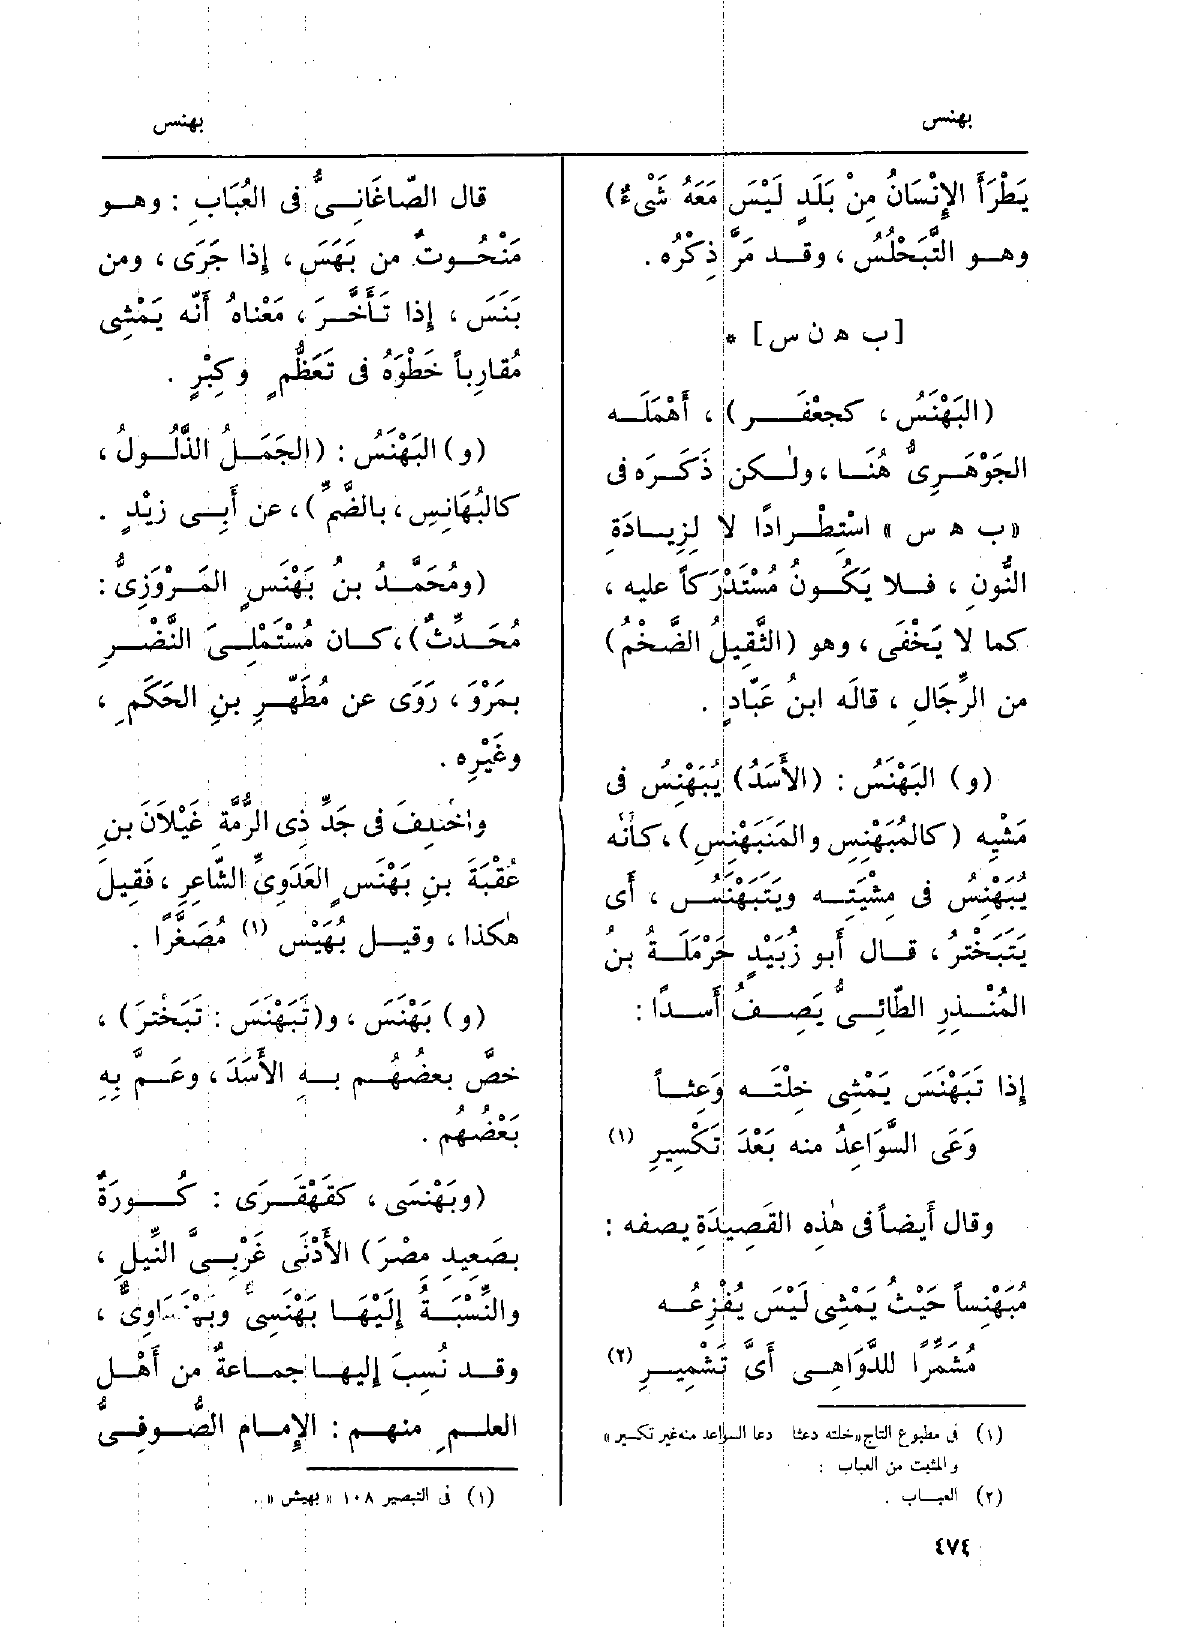 بهنس
بهنس
يَطْرَأَ الإِنْسَانُ مِنْ بَلَدٍ لَيْسَ مَعَهُ شَىْءٌ)
وهـو التَّبَحْلُسُ ، وقـد مَرَّ ذِكْرُه .
[ ب ه ن س ] *
(البَهْنَسُ ، كجعْفَـر) ، أَهْمَلَـه
الجَوْهَرِىُّ هُنَـا ، ولٰكن ذَكَرَه فى
« ب ه س » اسْتِطْـرادًا لا لِزِيـادَةِ
النُّونِ ، فـلا يَكُـونُ مُسْتَدْرَكاً عليه ،
كما لا يَخْفَى ، وهو (الثَّقِيلُ الضَّخْمُ)
من الرِّجَالِ ، قالَه ابنُ عَبّادٍ .
(و) البَهْنَسُ : (الأَسَدُ) يُبَهْنِسُ فى
مَشْيِه (كالمُبَهْنِسِ والمَتَبَهْنِسِ) ، كأَنَّه
يُبَهْنِسُ فى مِشْيَتِـه ويَتَبَهْنَسُ ، أَى
يَتَبَخْتَرُ ، قـال أَبو زُبَيْدٍ حَرْمَلَـةُ بنُ
المُنْـذِرِ الطّائِـىُّ يَصِـفُ أَسـدًا :
إِذا تَبَهْنَسَ يَمْشِى خِلْتَـه وَعِثـاً
وَعَى السَّوَاعِدُ منه بَعْدَ تَكْسِيرِ (١)
وقال أَيضاً فى هٰذِه القَصِيدَةِ يصفه :
مُبَهْنِساً حَيْثُ يَمْشِى لَيْسَ يُفْزِعُـه
مُشَمِّرًا للدَّوَاهِـى أَىَّ تَشْمِيـرِ (٢)
(١) فى مطبوع التاج «خلته دعثا دعا السواعد منه غير تكسير»
والمثبت من العباب :
(٢) العبـاب .
قال الصّاغَانِـىُّ فى العُبَابِ : وهـو
مَنْحُوتٌ من بَهَسَ ، إِذا جَرَى ، ومن
بَنَسَ ، إِذا تَـأَخَّـرَ ، مَعْناهُ أَنّه يَمْشِى
مُقارِباً خَطْوَهُ فى تَعَظُّمٍ وكِبْرٍ .
(و) البَهْنَسُ : (الجَمَلُ الذَّلُـولُ ،
كالبُهَانِسِ ، بالضَّمِّ) ، عن أَبِـى زيْدٍ .
(ومُحَمَّـدُ بنُ بَهْنَسٍ المَـرْوَزِىُّ :
مُحَـدِّثٌ) ، كـان مُسْتَمْلِـىَ النَّضْـرِ
بمَرْوَ ، رَوَى عن مُطَهَّرِ بنِ الحَكَمِ ،
وغَيْرِه .
واخْتُلِفَ فى جَدِّ ذِى الرُّمَّةِ غَيْلاَنَ بنِ
عُقْبَةَ بنِ بَهْنَسٍ العَدَوِىِّ الشّاعِرِ ، فَقِيلَ
هٰكذا ، وقيـل بُهَيْس (١) مُصَغَّرًا .
(و) بَهْنَسَ ، و(تَبَهْنَسَ : تَبَخْتَرَ) ،
خصَّ بعضُهُم بـهِ الأَسَدَ ، وعَـمَّ بِهِ
بَعْضُهُم .
(وبَهْنَسَى ، كقَهْقَـرَى : كُـورَةٌ
بصَعِيدِ مصْرَ) الأَدْنَى غَرْبِـىَّ النِّيلِ ،
والنِّسْبَةُ إِلَيْهَـا بَهْنَسِىٌّ وبَهْنَسَاوِىٌّ ،
وقـد نُسِبَ إِليهـا جماعةٌ من أَهْل
العلـم منهـم : الإِمـام الصُّـوفِـىُّ
(١) فى التبصير ١٠٨ « بهيش » .
٤٧٤